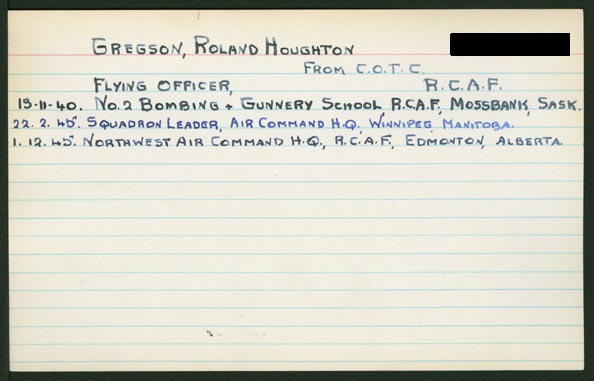 GREGSON, ROLAND HOUGHTON
FROM C.O.T.C.
FLYING OFFICER, R.C.A.F.
13-11-40. NO. 2 BOMBING + GUNNERY SCHOOL R.C.A.F., MOSSBANK, SASK.
22. 2. 45. SQUADRON LEADER, AIR COMMAND H.Q., WINNIPEG, MANITOBA.
1. 12. 45. NORTHWEST AIR COMMAND H.Q., R.C.A.F., EDMONTON, ALBERTA.